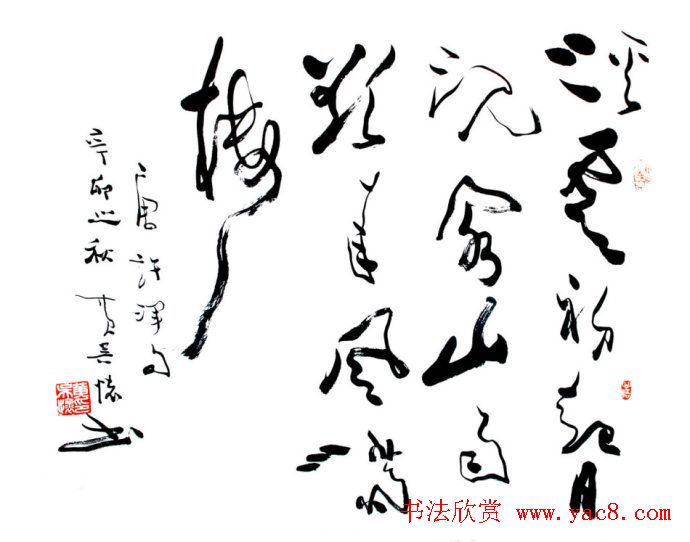 溪雲初起日
沉阁山雨
欲来风满
楼
唐许浑句
辛卯之秋
书
书法欣赏 www.yac8.com